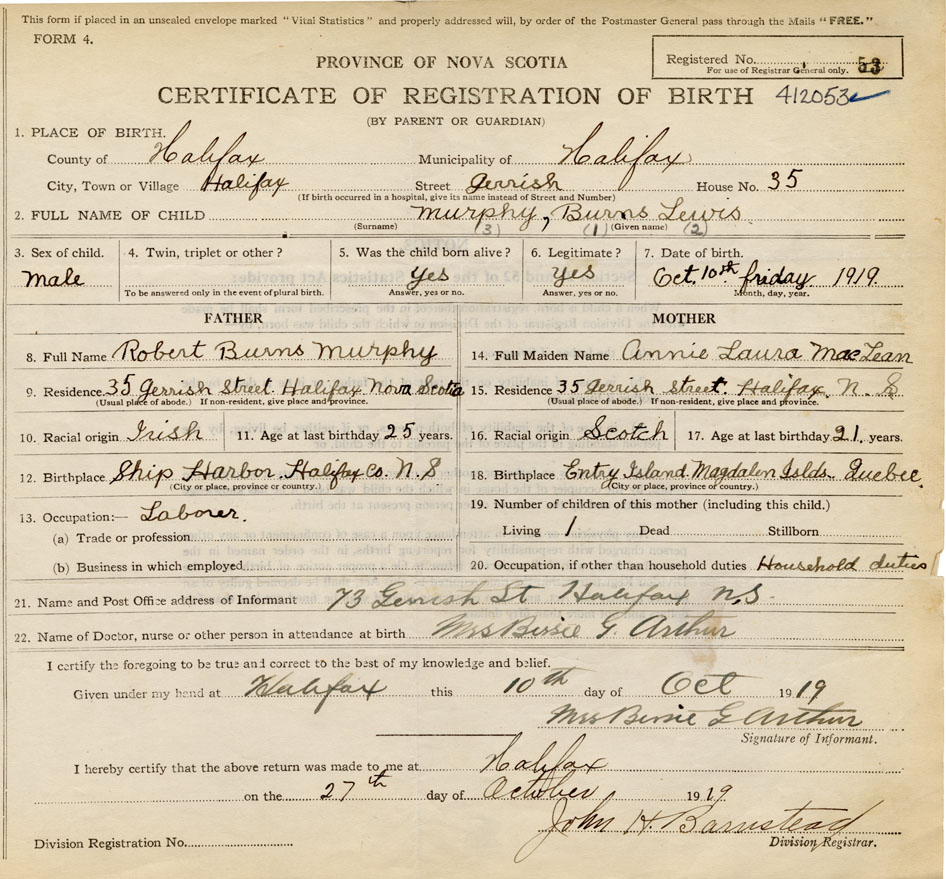 This form if placed in an unsealed envelope marked "Vital Statistics" and properly addressed will, by order of the Postmaster General pass through the Mails "FREE."
FORM 4.
Registered No. 53
For use of Registrar General only.
PROVINCE OF NOVA SCOTIA
CERTIFICATE OF REGISTRATION OF BIRTH 412053
(BY PARENT OR GUARDIAN)
1. PLACE OF BIRTH.
County of Halifax Municipality of Halifax
City, Town or Village Halifax Street Gerrish House No. 35
(If birth occurred in a hospital, give its name instead of Street and Number)
2. FULL NAME OF CHILD Murphy, Burns Lewis
(Surname) (3) (1) (Given name) (2)
3. Sex of child. 4. Twin, triplet or other? 5. Was the child born alive? 6. Legitimate? 7. Date of birth.
Male yes yes Oct. 10th friday 1919.
To be answered only in the event of plural birth. Answer, yes or no. Answer, yes or no. Month, day, year.
FATHER MOTHER
8. Full Name Robert Burns Murphy 14. Full Maiden Name Annie Laura MacLean
9. Residence 35 Gerrish Street. Halifax Nova Scotia 15. Residence 35 Gerrish Street. Halifax. N. S
(Usual place of abode.) If non-resident, give place and province. (Usual place of abode.) If non-resident, give place and province.
10. Racial origin Irish 11. Age at last birthday 25 years. 16. Racial origin Scotch 17. Age at last birthday 21. years.
12. Birthplace Ship Harbor. Halifax Co. N. S 18. Birthplace Entry Island. Magdalen Islds. Quebec.
(City or place, province or country.) (City or place, province or country.)
13. Occupation:— Laborer. 19. Number of children of this mother (including this child.)
(a) Trade or profession Living 1 Dead Stillborn
(b) Business in which employed 20. Occupation, if other than household duties Household duties
21. Name and Post Office address of Informant 73 Gerrish St Halifax N.S.
22. Name of Doctor, nurse or other person in attendance at birth Mrs G. Arthur
I certify the foregoing to be true and correct to the best of my knowledge and belief.
Given under my hand at Halifax this 10th day of Oct 1919
Mrs G Arthur
Signature of Informant.
I hereby certify that the above return was made to me at Halifax
on the 27th day of October 1919
John H. Barnstead
Division Registration No. Division Registrar.